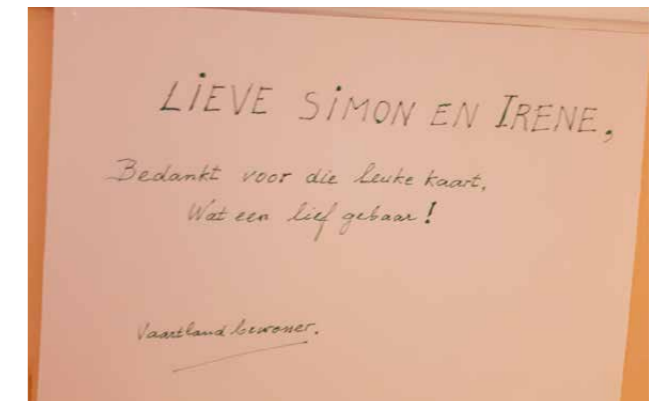 LiEVE SiMON EN IRENE,
Bedankt voor die leuke kaart.
Wat een lief gebaar!
Vaartland bewoner.